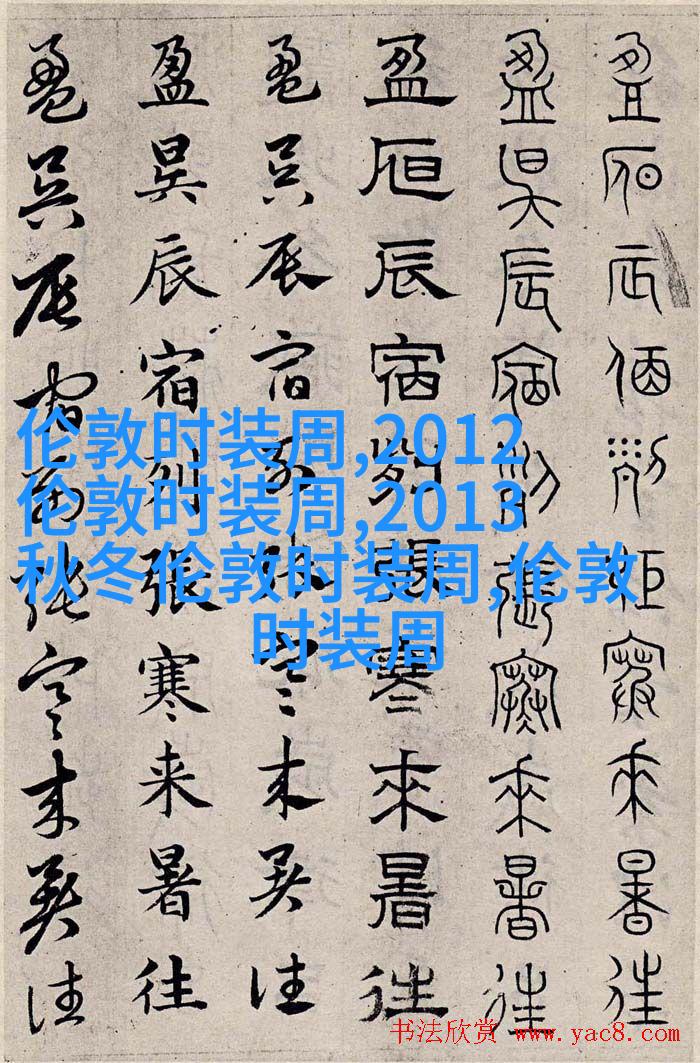 盈昃辰宿列張寒來暑往
盈昃辰宿列張寒來暑往
盈昃辰宿列張寒來暑往
盈昃辰宿列張寒来暑往
盈昃辰宿列張寒来暑往
盈昃辰宿列張寒来暑往
伦敦时装周,2012
伦敦时装周,2013
秋冬伦敦时装周,伦敦
时装周
书法欣赏 www.yac8.com